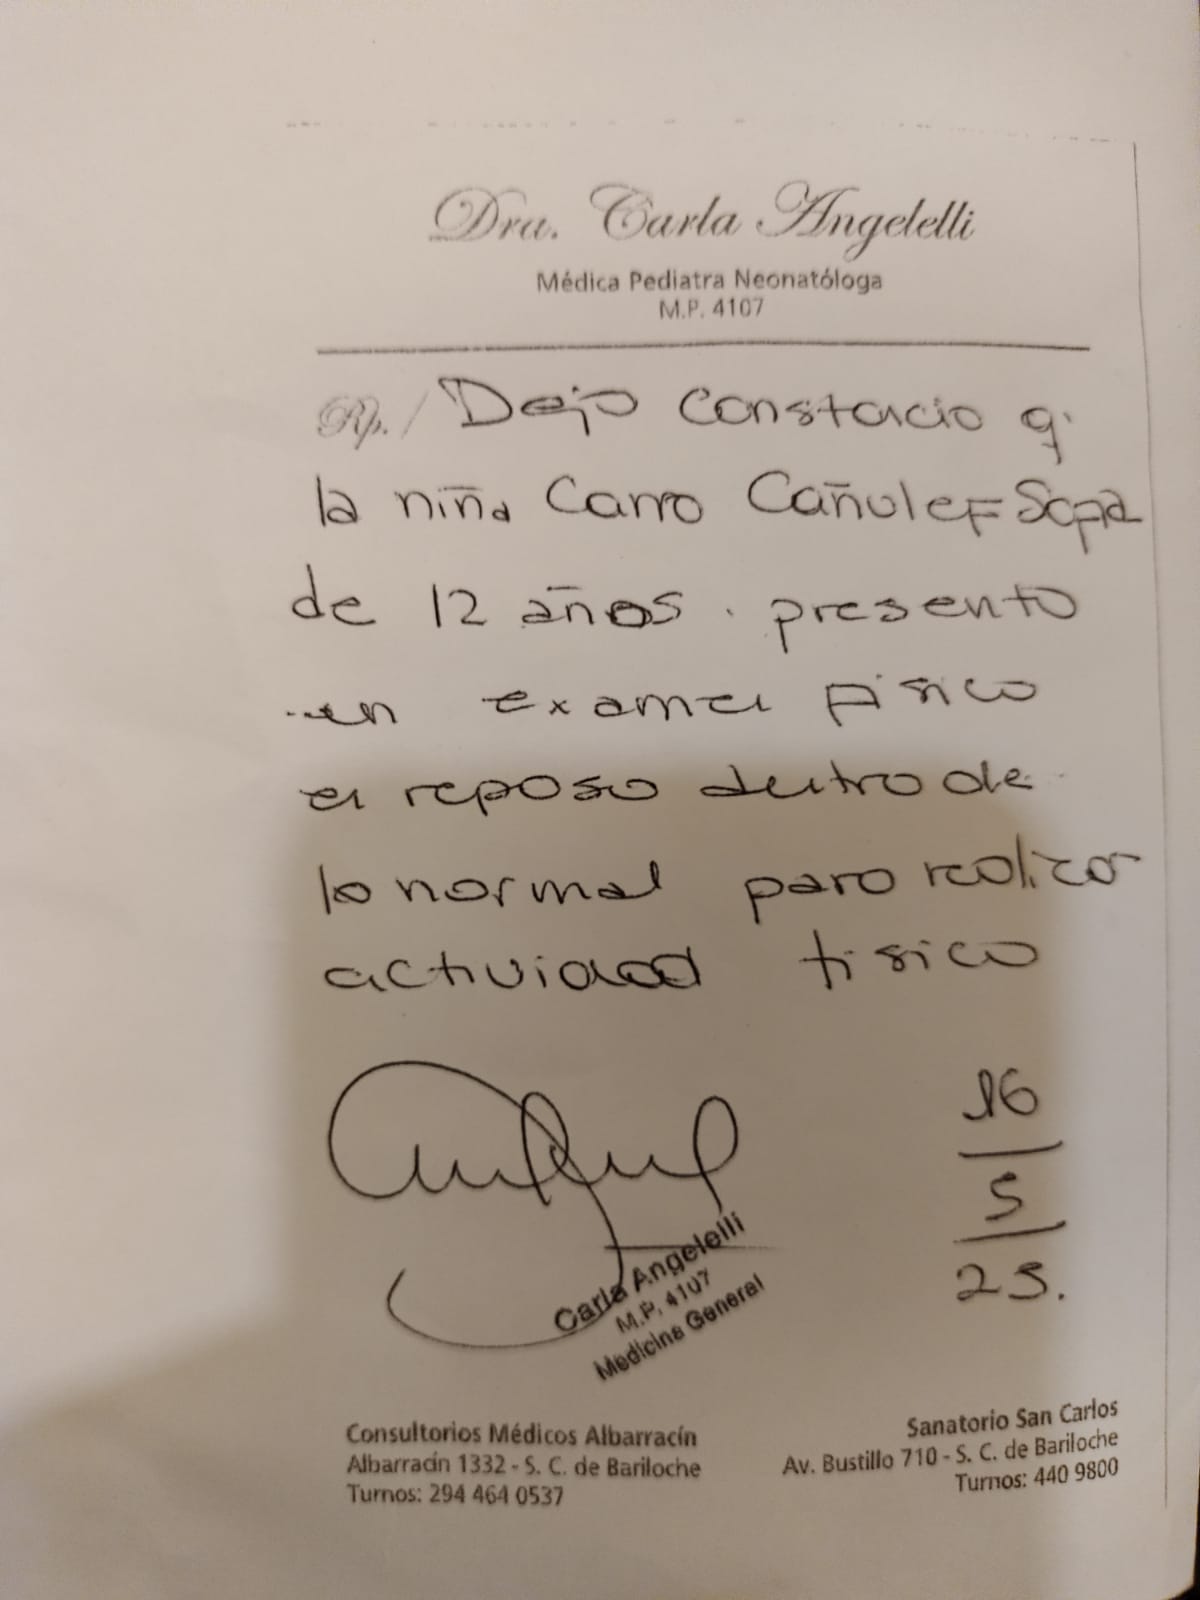 Dra. Carla Angelelli
Médica Pediatra Neonatóloga
M.P. 4107
Rp. / Dejo constacio q'
la niña Carro Cañulef Sofia
de 12 años. presento
en examen físico
en reposo dentro de
lo normal para realizar
actividad fisico
16
5
23.
Carla Angelelli
M.P. 4107
Medicina General
Consultorios Médicos Albarracín
Albarracín 1332 - S. C. de Bariloche
Turnos: 294 464 0537
Sanatorio San Carlos
Av. Bustillo 710 - S. C. de Bariloche
Turnos: 440 9800